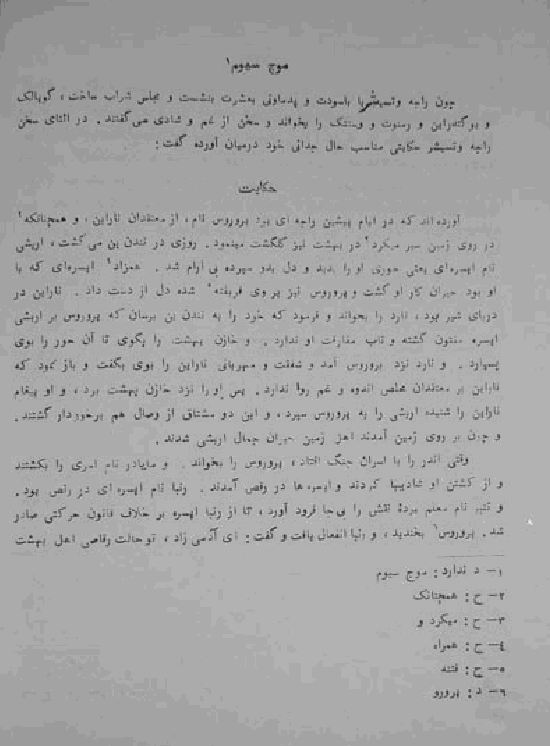 موج سیوم۱
چون راجه وتسیشر با باسودت و پدماوتی بعشرت بنشست و مجلس شراب ساخت، گوپالک
و برکنه‌راین و رمنوت و وسنتک را بخواند و سخن از غم و شادی می‌گفتند. در اثنای سخن
راجه وتسیشر حکایتی مناسب حال جدائی خود درمیان آورده گفت:
حکایت
آورده‌اند که در ایام پیشین راجه‌ای بود پروروس نام، از معتقدان ناراین، و همچنانکه۲
در روی زمین سیر میکرد۳ در بهشت نیز گلگشت مینمود. روزی در نندن بن می‌گشت، اربشی
نام اپسره‌ای یعنی حوری او را بدید و دل بدو سپرده بی‌آرام شد. همزاد۴ اپسره‌ای که با
او بود حیران کار او گشت و پروروس نیز بر وی فریفته۵ شده دل از دست داد. ناراین در
دریای شیر بود، نارد را بخواند و فرمود که خود را به نندن بن برسان که پروروس بر اربشی
اپسره مفتون گشته و تاب مفارقت او ندارد. و خازن بهشت را بگوی تا آن حور را بوی
بسپارد. و نارد نزد پروروس آمد و شفقت و مهربانی ناراین را بوی بگفت و باز نمود که
ناراین بر معتقدان مخلص اندوه و غم روا ندارد. پس او را نزد خازن بهشت برد، و او پیغام
ناراین را شنیده اربشی را به پروروس سپرد، و این دو مشتاق از وصال هم برخوردار گشتند.
و چون بر روی زمین آمدند اهل زمین حیران جمال اربشی شدند.
وقتی اندر را با اسران جنگ افتاد، پروروس را بخواند. و مایادر نام اسری را بکشتند
و از کشتن او شادیها کردند و اپسره‌ها در رقص آمدند. رنبا نام اپسره‌ای در رقص بود.
و تنبر نام معلم بردهٔ نقش را بی‌جا فرود آورد، تا از رنبا اپسره بر خلاف قانون حرکتی صادر
شد. پروروس۶ بخندید، و رنبا انفعال یافت و گفت: ای آدمی زاد، تو حالت رقاصی اهل بهشت
۱- د ندارد: موج سیوم
۲- ح: همچنانک
۳- ح: میکرد و
۴- ح: همراه
۵- ح: فتنه
۶- د: پرورو